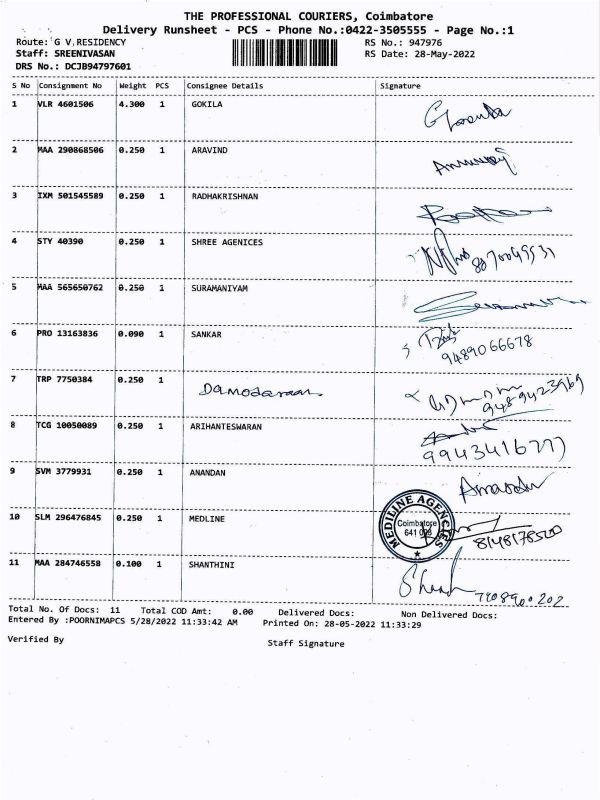 THE PROFESSIONAL COURIERS, Coimbatore
Delivery Runsheet - PCS - Phone No.:0422-3505555 - Page No.:1
Route: G V RESIDENCY RS No.: 947976
Staff: SREENIVASAN RS Date: 28-May-2022
DRS No.: DCJB94797601
S No Consignment No Weight PCS Consignee Details Signature
1 VLR 4601506 4.300 1 GOKILA
2 MAA 290868506 0.250 1 ARAVIND
3 IXM 501545589 0.250 1 RADHAKRISHNAN
4 STY 40390 0.250 1 SHREE AGENICES
5 MAA 565650762 0.250 1 SURAMANIYAM
6 PRO 13163836 0.090 1 SANKAR
9489066678
7 TRP 7750384 0.250 1 Damodaraan
9489423969
8 TCG 10050089 0.250 1 ARIHANTESWARAN
9943416777
9 SVM 3779931 0.250 1 ANANDAN
10 SLM 296476845 0.250 1 MEDLINE
MEDILINE AGENCIES
Coimbatore
8148178500
11 MAA 284746558 0.100 1 SHANTHINI
Total No. Of Docs: 11 Total COD Amt: 0.00 Delivered Docs: Non Delivered Docs:
Entered By :POORNIMAPCS 5/28/2022 11:33:42 AM Printed On: 28-05-2022 11:33:29
Verified By Staff Signature